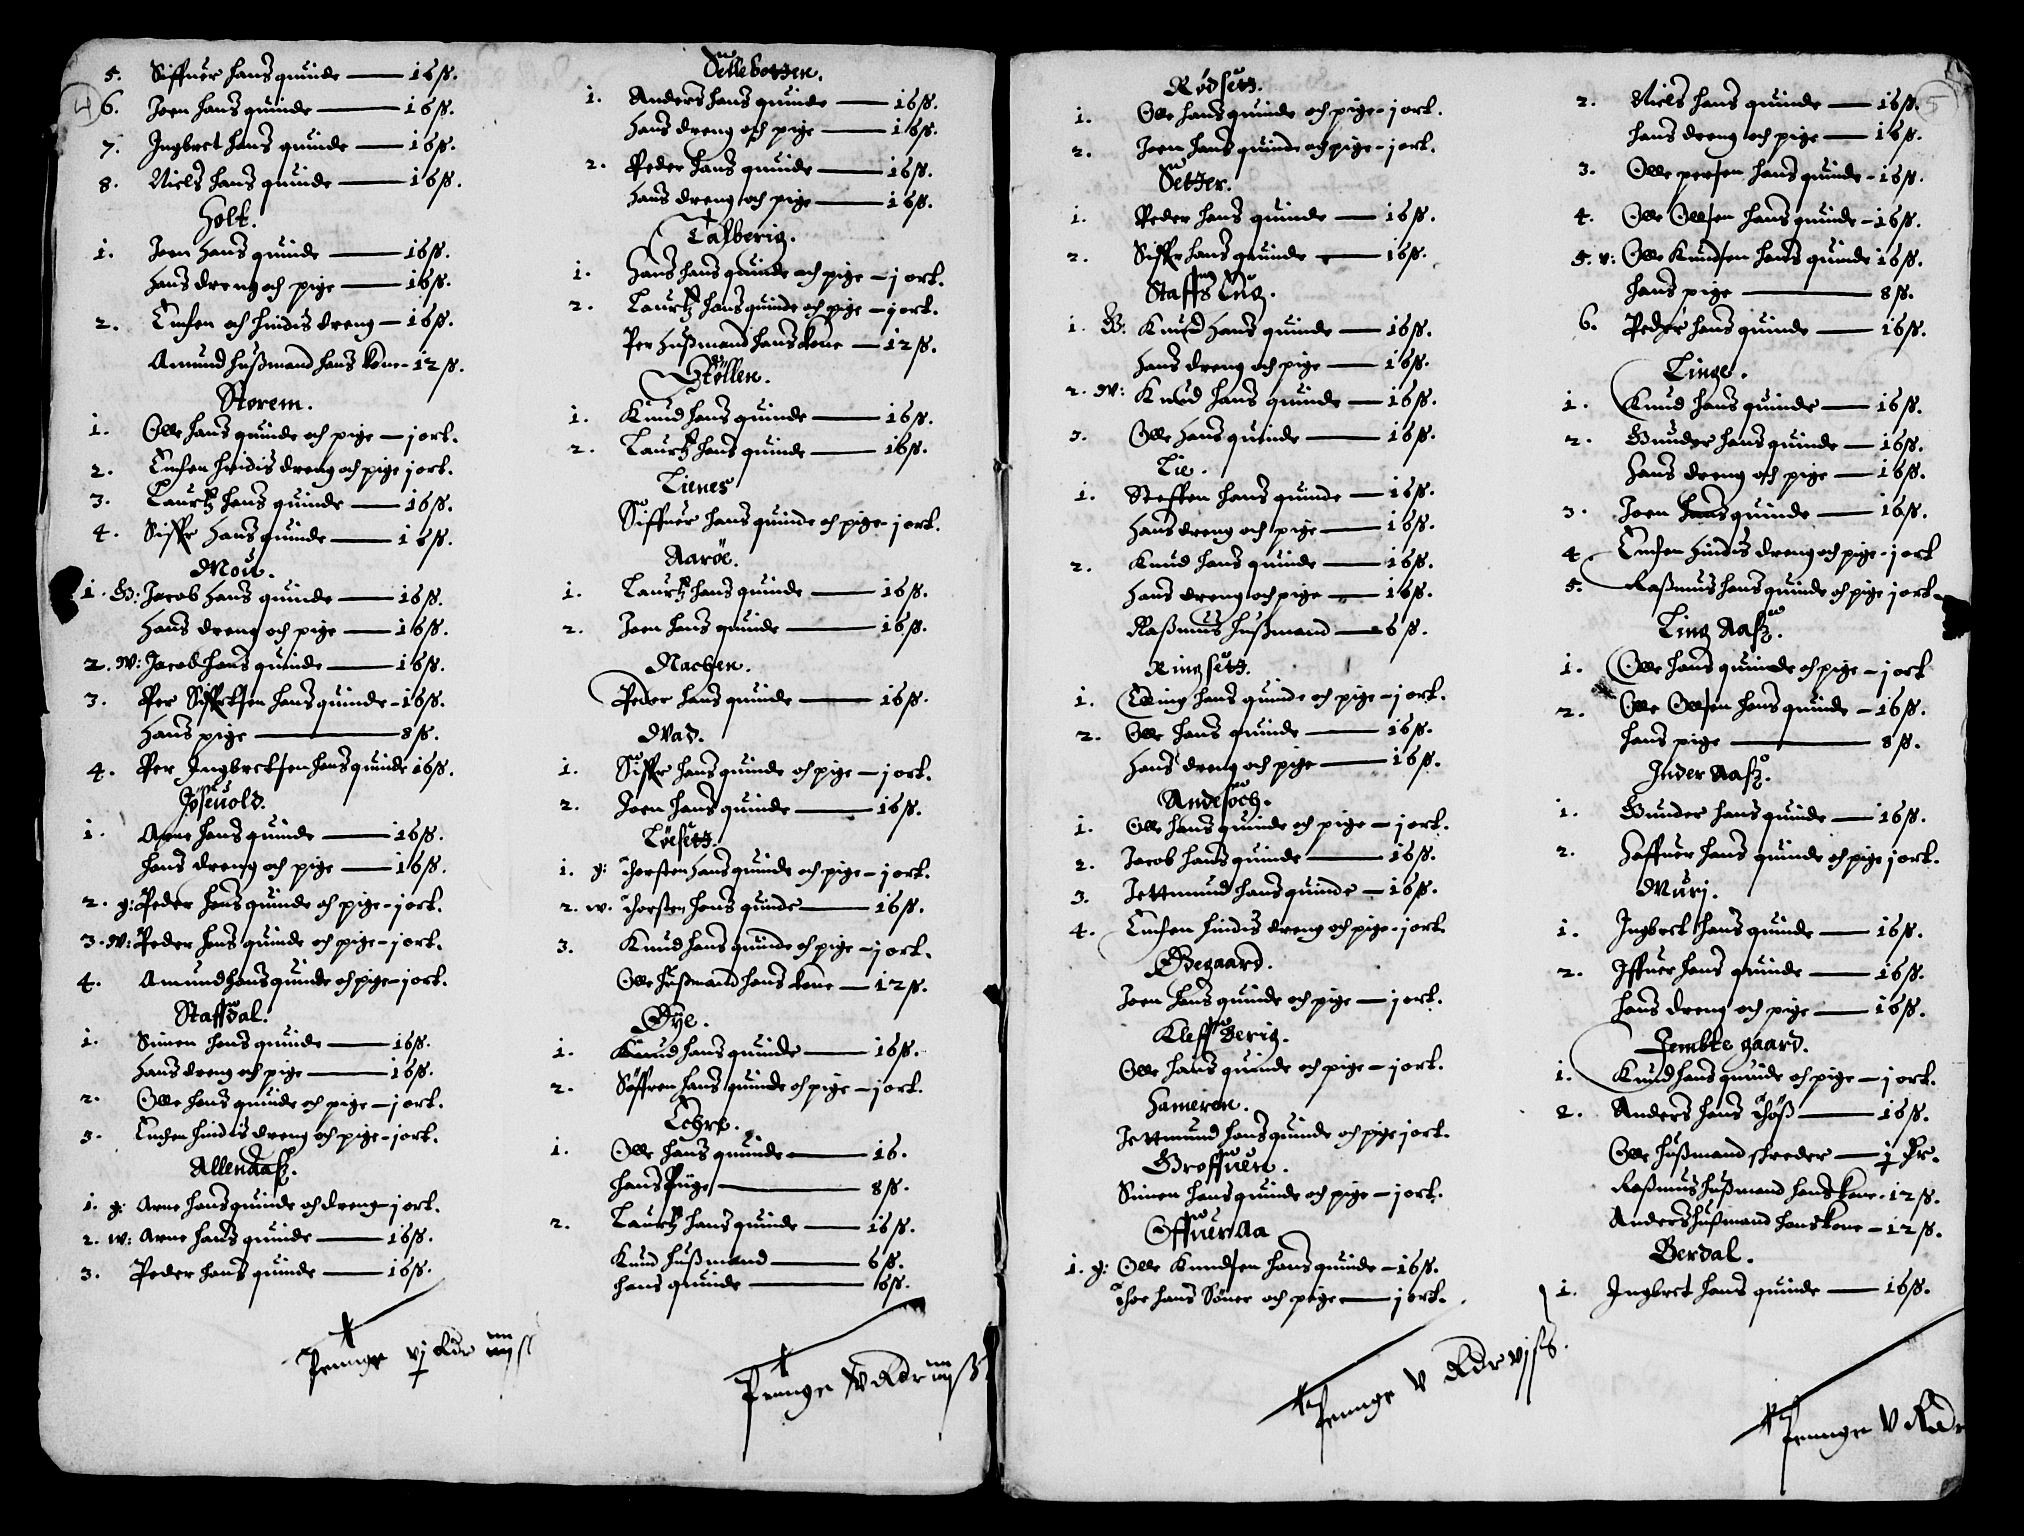 4
5. Siffuer hans quinde — 16 ß.
6. Joen hans quinde — 16 ß.
7. Ingbret hans quinde — 16 ß.
8. Niels hans quinde — 16 ß.
Holt.
1. Joen hans quinde — 16 ß.
hans dreng och pige — 16 ß.
2. Enchen och hindis dreng — 16 ß.
Amund hußmand hans kone - 12 ß.
Storem.
1. Olle hans quinde och pige — j ort.
2. Enchen hindis dreng och pige j ort.
3. Laurtz hans quinde — 16 ß.
4. Siffr hans quinde — 16 ß.
Mou.
1. G: Jacob hans quinde — 16 ß.
hans dreng och pige — 16 ß.
2. W: Jacob hans quinde — 16 ß.
3. Per Siffretsen hans quinde - 16 ß.
hans pige — 8 ß.
4. Per Ingbretsen hans quinde 16 ß.
Jøseuold.
1. Arne hans quinde — 16 ß.
hans dreng och pige — 16 ß.
2. g: Peder hans quinde och pige - j ort.
3. W: Peder hans quinde och pige - j ort.
4. Amund hans quinde och pige - j ort.
Staffdal.
1. Simen hans quinde — 16 ß.
hans dreng och pige — 16 ß.
2. Olle hans quinde och pige — j ort.
3. Enchen hindis dreng och pige - j ort.
Allenaasz.
1. g: Arne hans quinde och dreng - j ort.
2. W: Arne hans quinde — 16 ß.
3. Peder hans quinde — 16 ß.
Penge vj Rdr
Sellebotten.
1. Anders hans quinde — 16 ß.
hans dreng och pige — 16 ß.
2. Peder hans quinde — 16 ß.
hans dreng och pige — 16 ß.
Talberig.
1. Hans hans quinde och pige — j ort.
2. Laurtz hans quinde och pige — j ort.
Per Hußmand hans kone — 12 ß.
Støllen.
1. Knud hans quinde — 16 ß.
2. Laurtz hans quinde — 16 ß.
Lienes
Siffuer hans quinde och pige - j ort.
Aarøe.
1. Laurtz hans quinde — 16 ß.
2. Joen hans quinde — 16 ß.
Nachen.
Peder hans quinde — 16 ß.
Wad.
1. Siffr hans quinde och pige — j ort.
2. Joen hans quinde — 16 ß.
Løesetz.
1. g: Thorsten hans quinde och pige — j ort.
2. W. Thorsten hans quinde — 16 ß.
3. Knud hans quinde och pige — j ort.
Olle hußmand hans kone — 12 ß.
Øye.
1. Knud hans quinde — 16 ß.
2. Søffren hans quinde och pige — j ort.
Lehre.
1. Olle hans quinde — 16.
hans Piige — 8 ß.
2. Laurtz hans quinde — 16 ß.
Knud hußmand — 6 ß.
hans quinde — 6 ß.
Penge Rdr
5
Rødsetz.
1. Olle hans quinde och pige - j ort.
2. Joen hans quinde och pige - j ort.
Setter.
1. Peder hans quinde — 16 ß.
2. Siffr hans quinde — 16 ß.
Staffs Eng.
1. G: Knud hans quinde — 16 ß.
hans dreng och pige — 16 ß.
2. W: Knud hans quinde — 16 ß.
3. Olle hans quinde — 16 ß.
Lie.
1. Steffen hans quinde — 16 ß.
hans dreng och pige — 16 ß.
2. Knud hans quinde — 16 ß.
hans dreng och pige — 16 ß.
Raßmus hußmand — 6 ß.
Ringsetz.
1. Elling hans quinde och pige — j ort.
2. Olle hans quinde — 16 ß.
hans dreng och pige — 16 ß.
Andesoch.
1. Olle hans quinde och pige — j ort.
2. Jacob hans quinde — 16 ß.
3. Jettmund hans quinde — 16 ß.
4. Enchen hindis dreng och pige - j ort
Øegaard.
Joen hans quinde och pige — j ort.
Kleffberig.
Olle hans quinde och pige — j ort.
Hameren.
Jettmund hans quinde och pige j ort.
Groffuen.
Simen hans quinde och pige — j ort.
Offueraa
1. g: Olle Knudsen hans quinde — 16 ß.
Thor hans Sønne och pige — j ort.
Penge V Rdr vj ß.
2. Niels hans quinde — 16 ß.
hans dreng och pige — 16 ß.
3. Olle persen hans quinde - 16 ß.
4. Olle Ollsen hans quinde — 16 ß.
5. v: Olle Knudsen hans quinde 16 ß.
hans pige — 8 ß.
6. Peder hans quinde — 16 ß.
Linge.
1. Knud hans quinde — 16 ß.
2. Gunder hans quinde — 16 ß.
hans dreng och pige — 16 ß.
3. Joen hans quinde — 16 ß.
4. Enchen hindis dreng och pige - j ort
5. Raßmus hans quinde och pige j ort.
Ling Aasz.
1. Olle hans quinde och pige — j ort
2. Olle Ollsen hans quinde — 16 ß.
hans pige — 8 ß.
Inder Aasz.
1. Gunder hans quinde — 16 ß.
2. Haffuer hans quinde och pige j ort.
Murj.
1. Ingbret hans quinde — 16 ß.
2. Iffuer hans quinde — 16 ß.
hans dreng och pige — 16 ß.
Jembte gaard.
1. Knud hans quinde och pige — j ort.
2. Anders hans — 16 ß.
Olle hußmand skreder —
Raßmus hußmand hans kone - 12 ß.
Anders hußmand hans kone — 12 ß.
Berdal.
1. Ingbret hans quinde — 16 ß.
Penge V Rdr